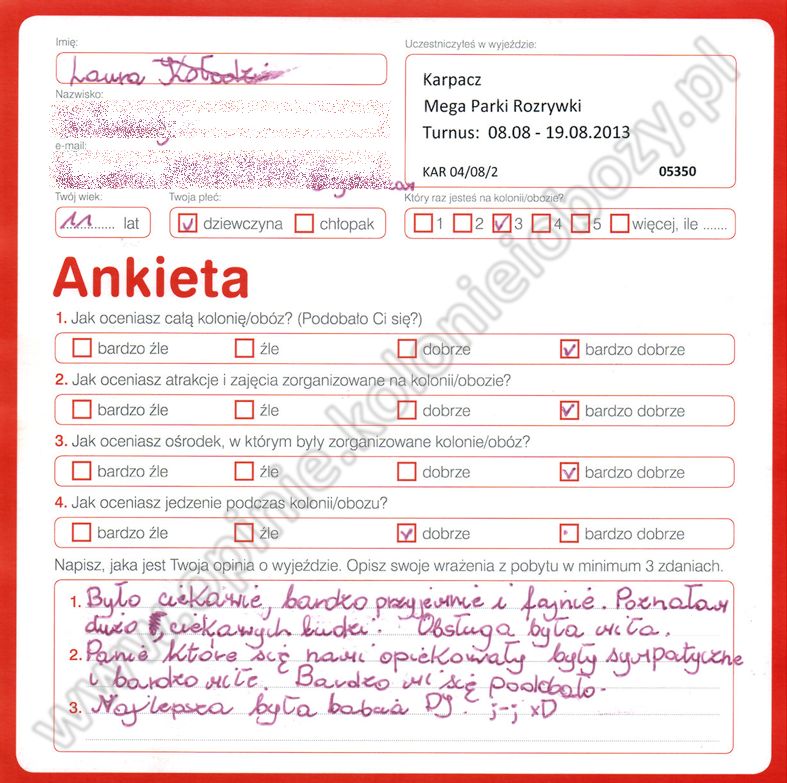 Imię:
Laura
Nazwisko:
e-mail:
Uczestniczyłeś w wyjeździe:
Karpacz
Mega Parki Rozrywki
Turnus: 08.08 - 19.08.2013
KAR 04/08/2 05350
Twój wiek:
11 lat
Twoja płeć:
dziewczyna chłopak
Który raz jesteś na kolonii/obozie?
1 2 3 4 5 więcej, ile .......
Ankieta
1. Jak oceniasz całą kolonię/obóz? (Podobało Ci się?)
bardzo źle źle dobrze bardzo dobrze
2. Jak oceniasz atrakcje i zajęcia zorganizowane na kolonii/obozie?
bardzo źle źle dobrze bardzo dobrze
3. Jak oceniasz ośrodek, w którym były zorganizowane kolonie/obóz?
bardzo źle źle dobrze bardzo dobrze
4. Jak oceniasz jedzenie podczas kolonii/obozu?
bardzo źle źle dobrze bardzo dobrze
Napisz, jaka jest Twoja opinia o wyjeździe. Opisz swoje wrażenia z pobytu w minimum 3 zdaniach.
1. Było ciekawie, bardzo przyjemnie i fajnie. Poznałam
dużo ciekawych ludzi. Obsługa była miła.
2. Panie które się nami opiekowały były sympatyczne
i bardzo miłe. Bardzo mi się podobało.
3. Najlepsza była babcia DJ. j-j xD
www.opinie.kolonieiobozy.pl